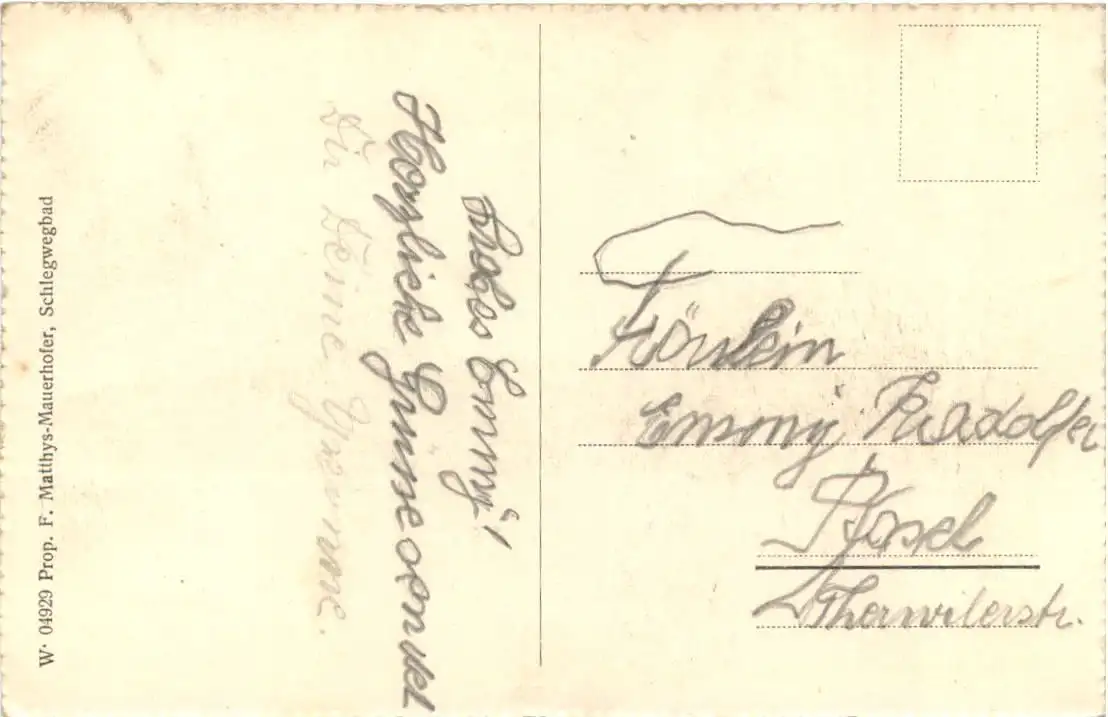 W· 04929 Prop. F. Matthys-Mauerhofer, Schlegwegbad
Liebes Emmy!
Herzliche Grüsse sendet
Dir Deine Yvonne.
Fräulein
Emmy
Basel
Therwilerstr.